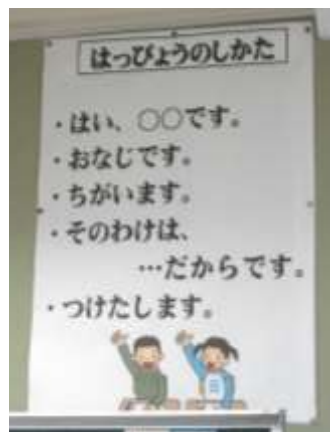 はっぴょうのしかた
・はい、○○です。
・おなじです。
・ちがいます。
・そのわけは、
…だからです。
・つけたします。